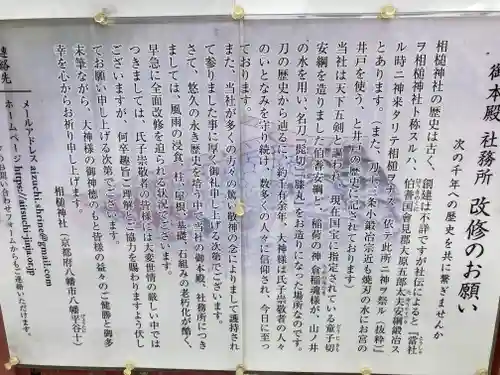 御本殿 社務所 改修のお願い
次の千年への歴史を共に繋ぎませんか
相槌神社の歴史は古く、創建は不詳ですが社伝によると『當社
ヲ相槌神社ト称スルハ、伯耆国會見郡大原五郎太夫安綱鍛冶ス
ル時ニ神来タリテ相槌ヲナス、依テ此所ニ神ヲ祭ル(抜粋)』
とあります。(また、刀匠三條小鍛冶宗近も焼刃の水にお宮の
井戸を使う、と井戸の歴史に記されております)
当社は天下五剣と謳われ、現在国宝に指定されている童子切
安綱を造りました伯耆安綱と、稲荷の神 倉稲魂様が、山ノ井
の水を用い、名刀「髭切」「膝丸」をお造りになった場所なのです。
刀の歴史から辿るに、約千有余年、大神様は氏子崇敬者の人々
のいとなみを守り続け、数多くの人々に信仰され、今日に至っ
ております。
また、当社が多くの方々の篤い敬神の念によりまして護持され
て参りました事に厚く御礼申し上げる次第でございます。
さて、悠久の永き歴史を培う中で当社の御本殿、社務所につき
ましては、風雨の浸食、柱、屋根、基礎、石組みの老朽化が酷く、
早急に全面改修を迫られる状況でございます。
つきましては、氏子崇敬者の皆様には大変世情の厳しい中では
ございますが、何卒趣旨ご理解とご協力を賜わりますよう伏し
てお願い申し上げる次第でございます。
末筆ながら、大神様の御神徳のもと皆様の益々のご健勝と御多
幸を心からお祈り申し上げます。
相槌神社(京都府八幡市八幡平谷十)
連絡先
メールアドレス aizuchi.shrine@gmail.com
ホームページ https://aitsuchi-jinja.or.jp
のお問い合わせフォームからもご連絡いただけます。